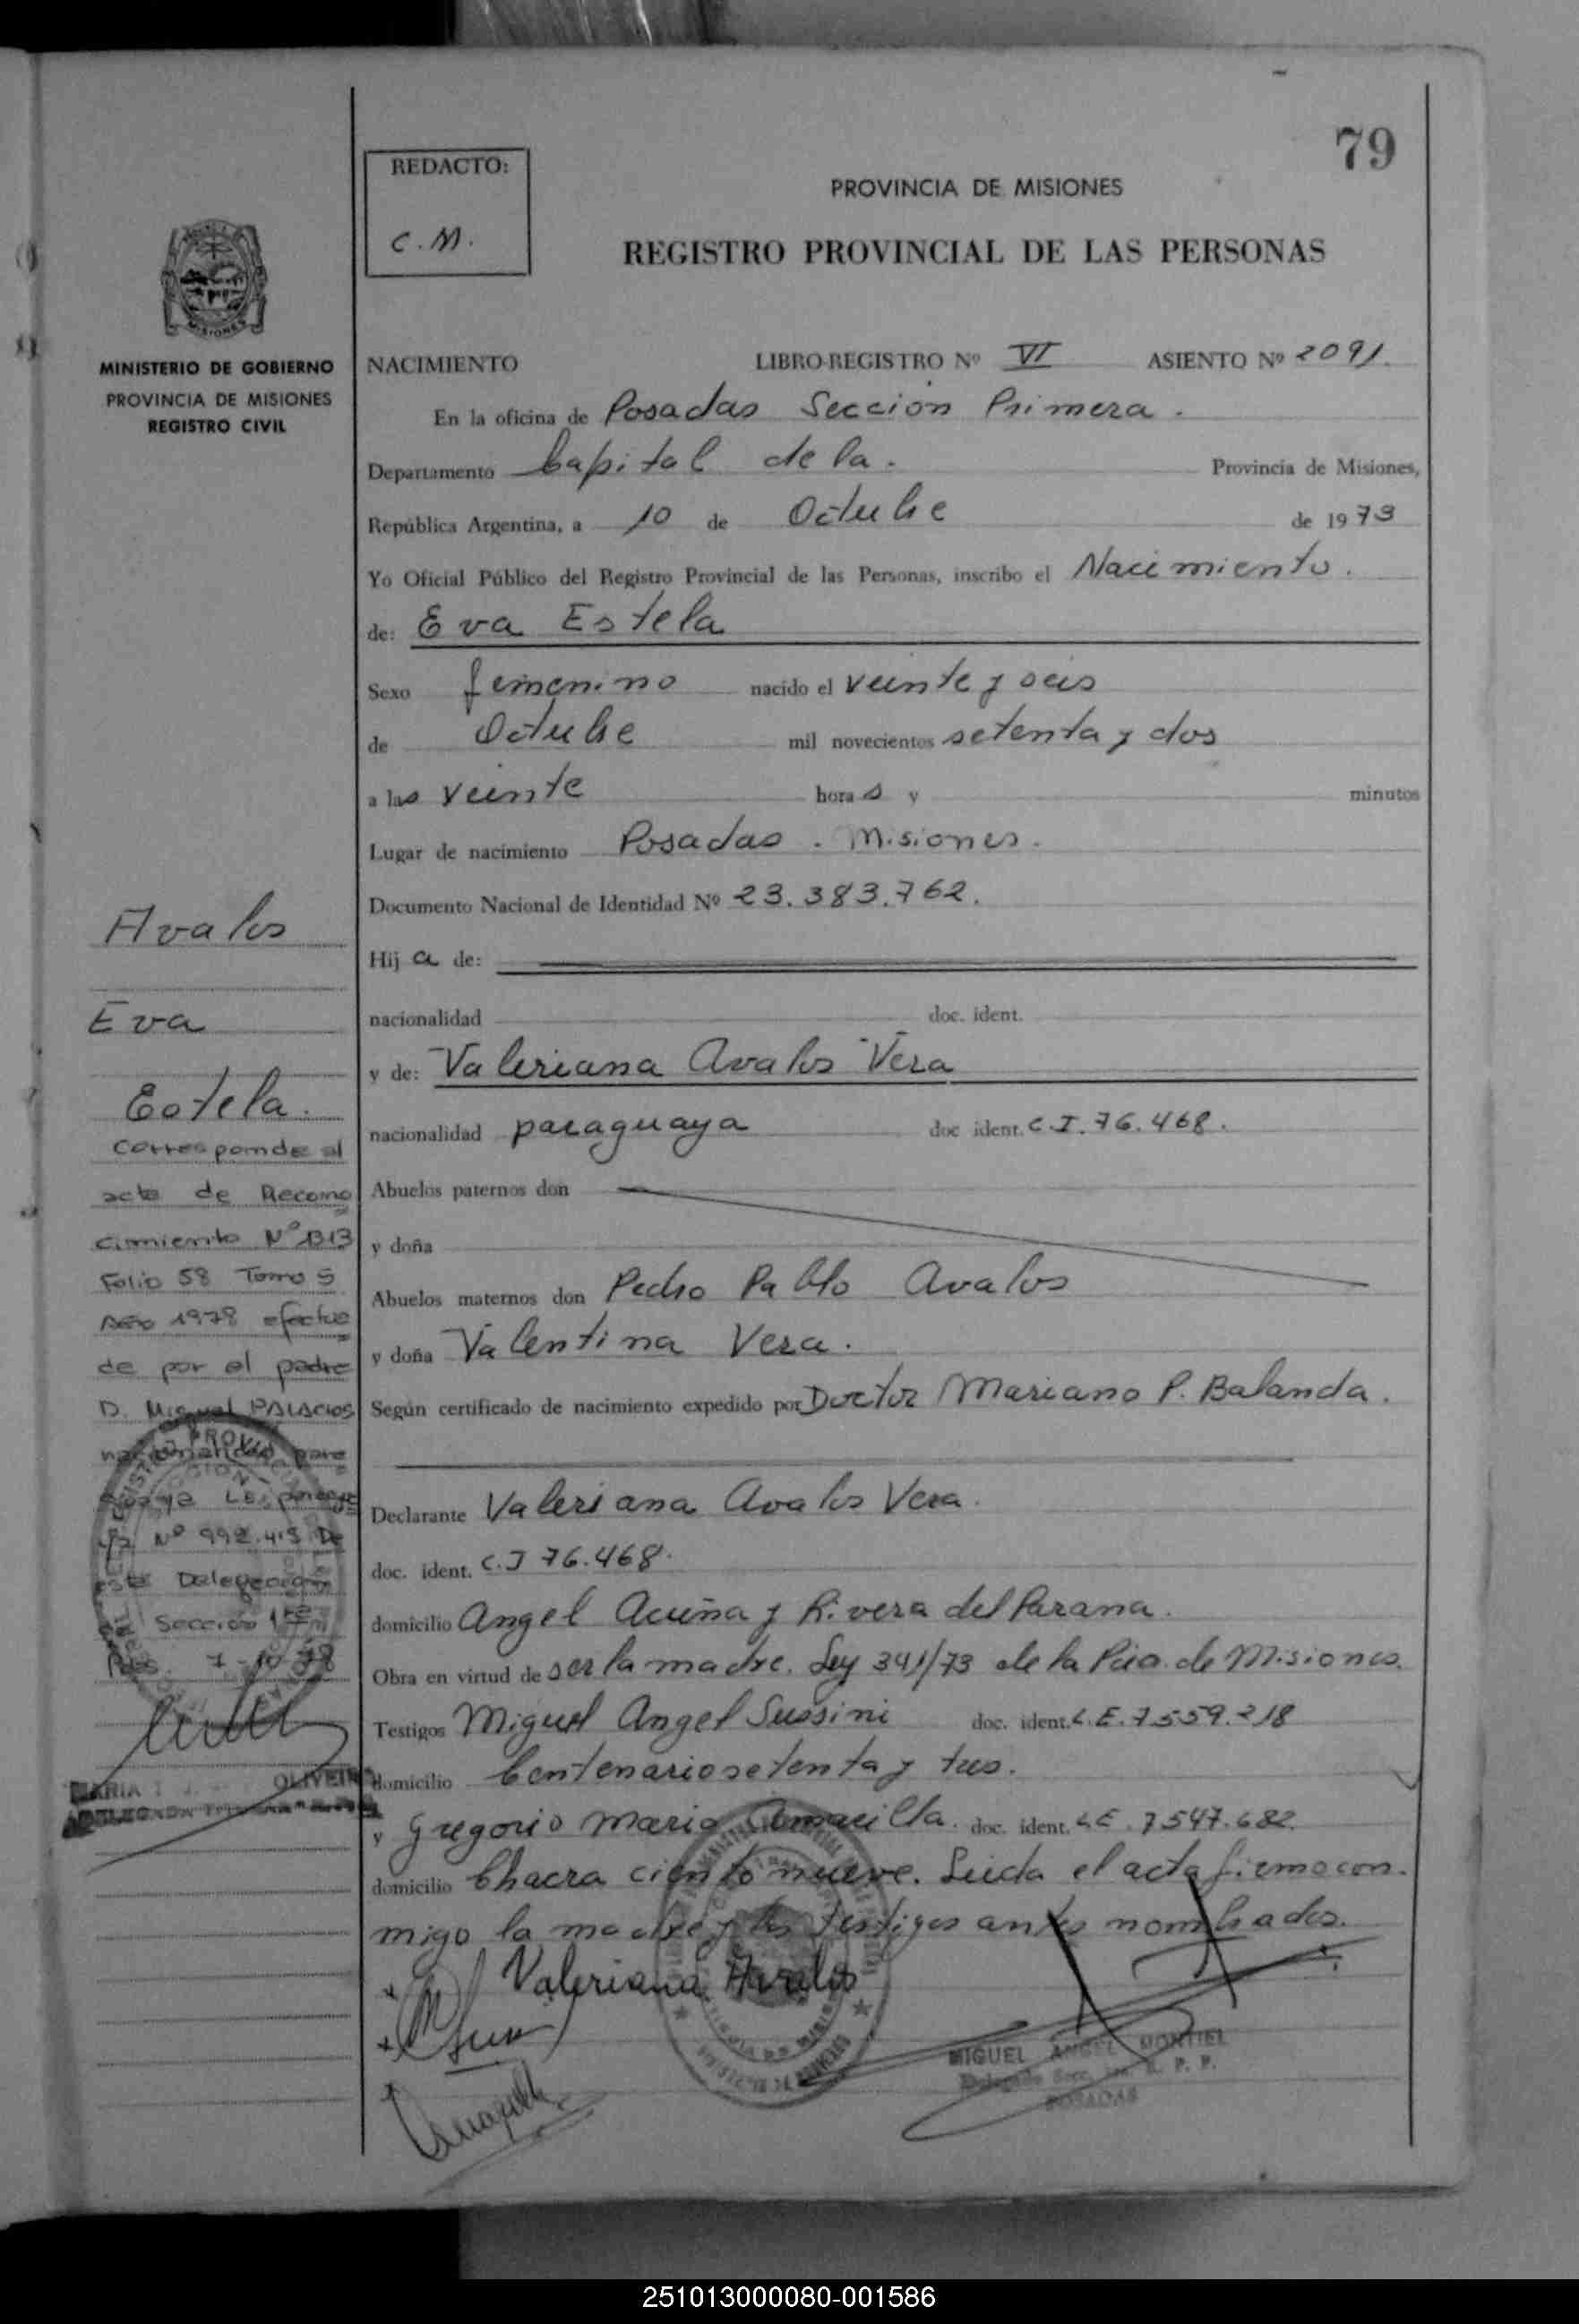 79
REDACTO:
C.M.
PROVINCIA DE MISIONES
REGISTRO PROVINCIAL DE LAS PERSONAS
MISIONES
MINISTERIO DE GOBIERNO
PROVINCIA DE MISIONES
REGISTRO CIVIL
NACIMIENTO LIBRO-REGISTRO Nº VI ASIENTO Nº 2091.
En la oficina de Posadas Sección Primera.
Departamento Capital de la. Provincia de Misiones,
República Argentina, a 10 de Octubre de 1973
Yo Oficial Público del Registro Provincial de las Personas, inscribo el Nacimiento.
de: Eva Estela
Sexo femenino nacido el veinte y seis
de Octubre mil novecientos setenta y dos
a las veinte horas y minutos
Lugar de nacimiento Posadas. Misiones.
Documento Nacional de Identidad Nº 23.383.762.
Hija de:
nacionalidad doc. ident.
y de: Valeriana Avalos Vera
nacionalidad paraguaya doc ident. C.I. 76.468.
Abuelos paternos don
y doña
Abuelos maternos don Pedro Pablo Avalos
y doña Valentina Vera.
Según certificado de nacimiento expedido por Doctor Mariano P. Balanda.
Declarante Valeriana Avalos Vera.
doc. ident. C.I 76.468.
domicilio Angel Acuña y Rivera del Parana.
Obra en virtud de ser la madre. Ley 341/73 de la Pcia. de Misiones.
Testigos Miguel Angel Sussini doc. ident. L.E. 7559.218
domicilio Centenario setenta y tres.
y Gregorio Mario Amarilla. doc. ident. LE. 7547.682.
domicilio Chacra ciento nueve. Leida el acta firma con-
migo la madre y los testigos antes nombrados.
Valeriana Avalos
MIGUEL ANGEL MONTIEL
R. P. P.
POSADAS
Avalos
Eva
Estela.
Corresponde al
acta de Recono
cimiento Nº 1313
Folio 58 Tomo 5
Año 1978 efectua
da por el padre
D. Miguel PALACIOS
nacionalidad para
guaya
Nº 992.415 De
esta Delegación
Sección 1ra
Pdas. 7-10-78
MARIA OLIVEIRA
251013000080-001586